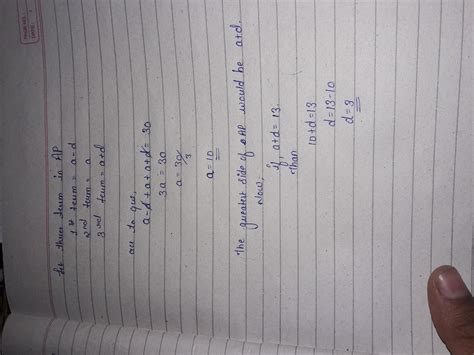 PAGE NO.:
DATE:
let three term in AP
1 st term = a-d
2nd term = a
3 rd term = a+d
acc to que,
a-d+a+a+d = 30
3a = 30
a = 30/3
a = 10
the greatest side of AP would be a+d.
Now,
if, a+d = 13.
than
10+d=13
d=13-10
d=3